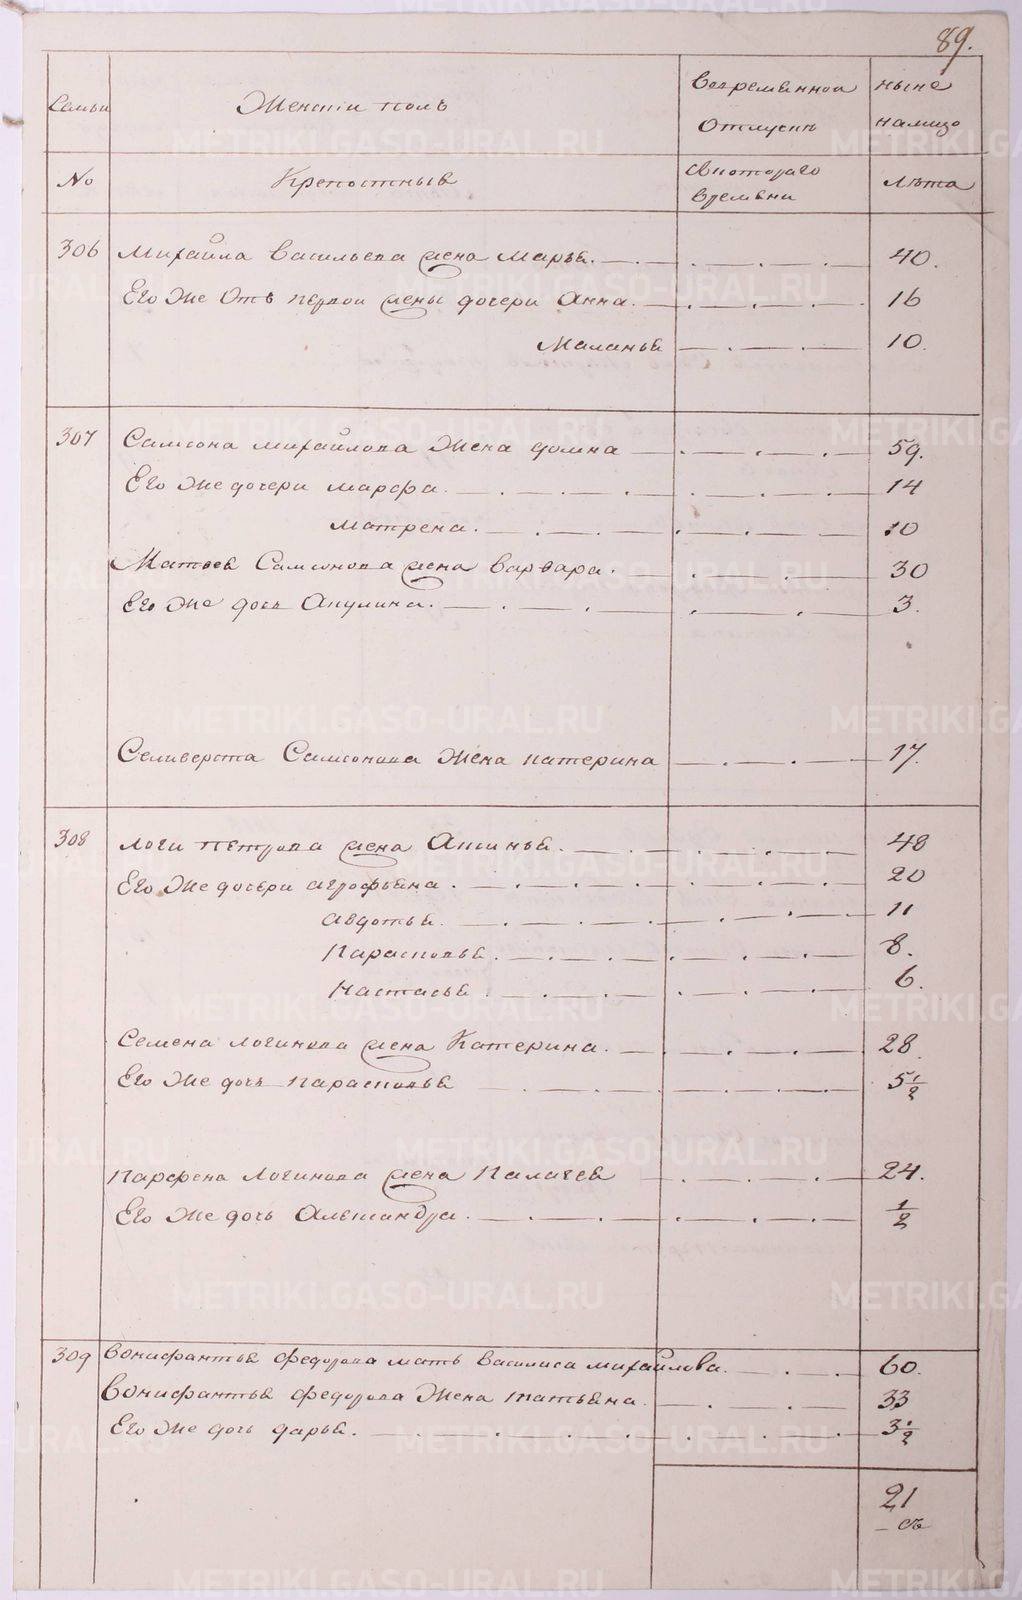 89.
Семьи Женскiй полъ Вовременной Отлучкѣ ныне налицо
No Крепостные Скотораго времени лѣта
306 Михаила Васильева жена Марья. 40.
Его же отъ первой жены дочери Анна. 16
Маланья 10.
307 Самсона Михайлова жена Домна 59.
Его же дочери Марфа. 14
Матрена. 10
Матвея Самсонова жена Варвара. 30
Его же дочь Акулина. 3.
Селиверста Самсонова жена катерина 17.
308 Логи Петрова жена Аксинья. 48
Его же дочери агрофѣена. 20
авдотья. 11
Парасковья. 8.
Настасья. 6.
Семена Логинова жена Катерина. 28.
Его же дочь Парасковья 5 1/2
Парфена Логинова жена Палагея 24.
Его же дочь Александра. 1/2
309 Вонифантья Федорова мать Василиса Михайлова. 60.
Вонифантья Федорова жена татьяна. 33
Его же дочь дарья. 3 1/2
21
METRIKI.GASO-URAL.RU